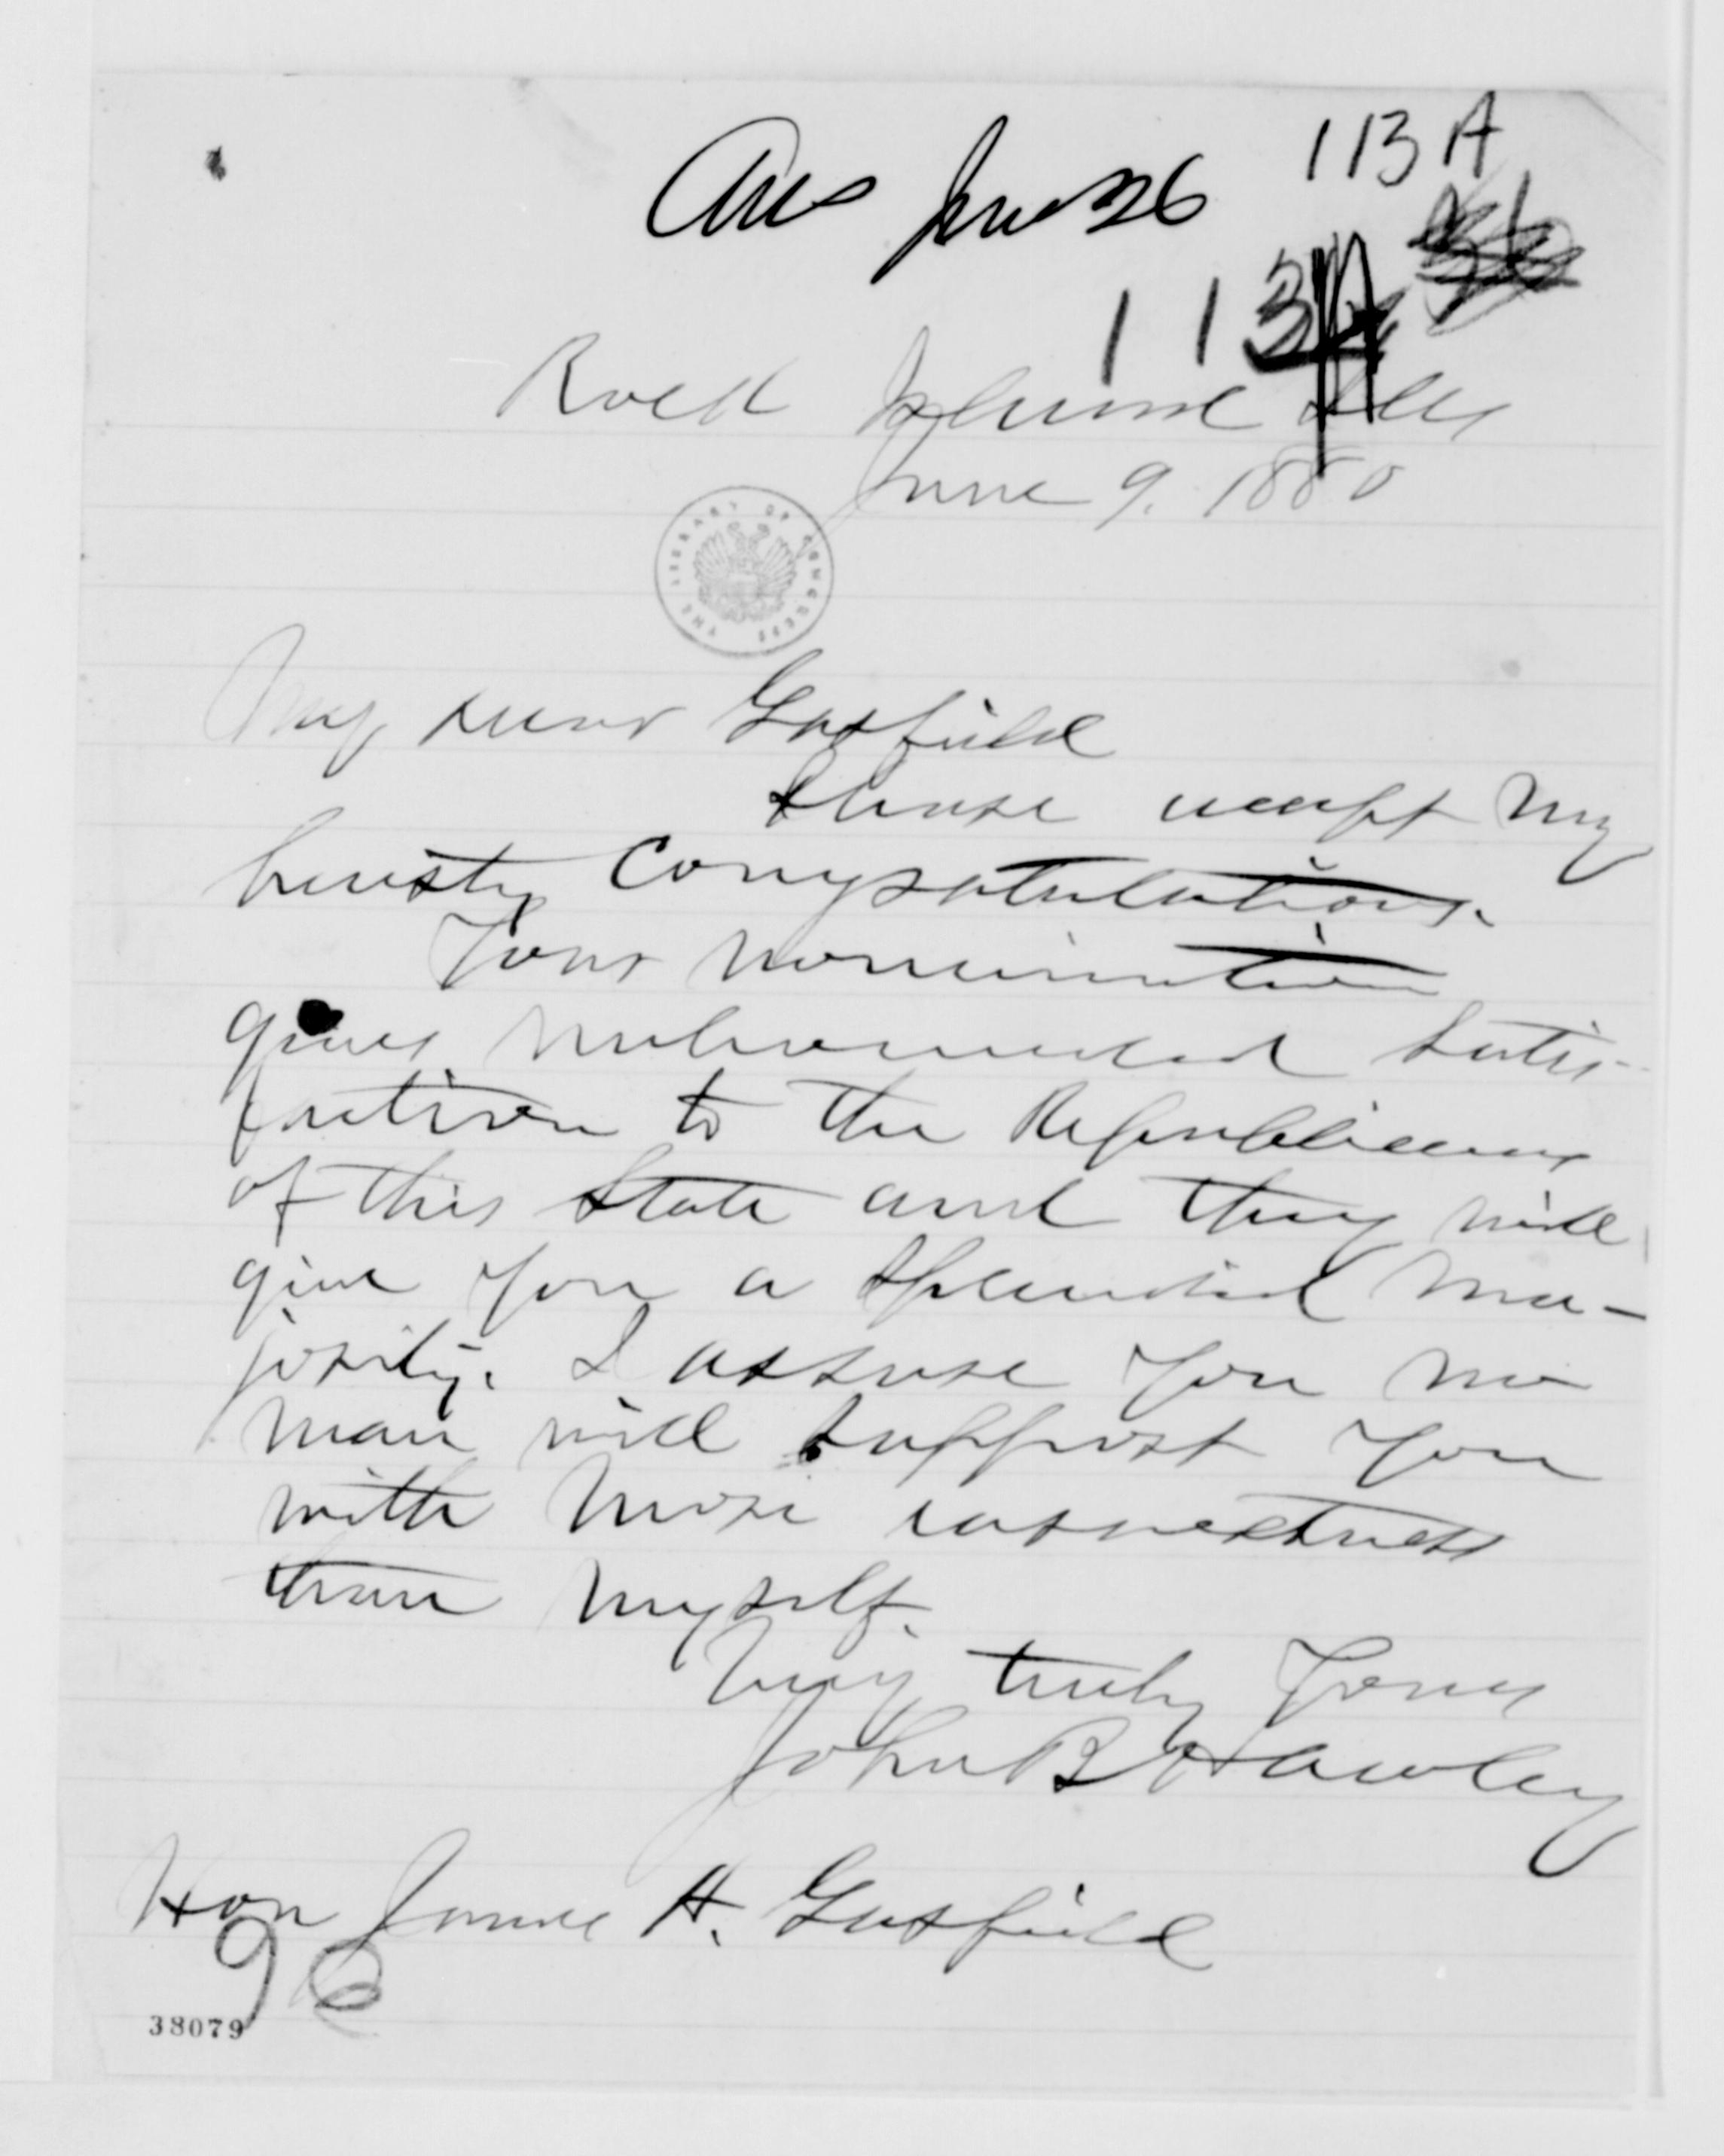 Ans June 26
113 A
113
Rock Island Ills
June 9. 1880
THE LIBRARY OF CONGRESS
My dear Garfield
Please accept my
hearty Congratulations.
Your nomination
gives unbounded satis-
faction to the Republicans
of this State and they will
give you a splendid ma-
jority. I assure you no
man will support you
with more earnestness
than myself.
Very truly Yours
John B Hawley
Hon James A. Garfield
38079